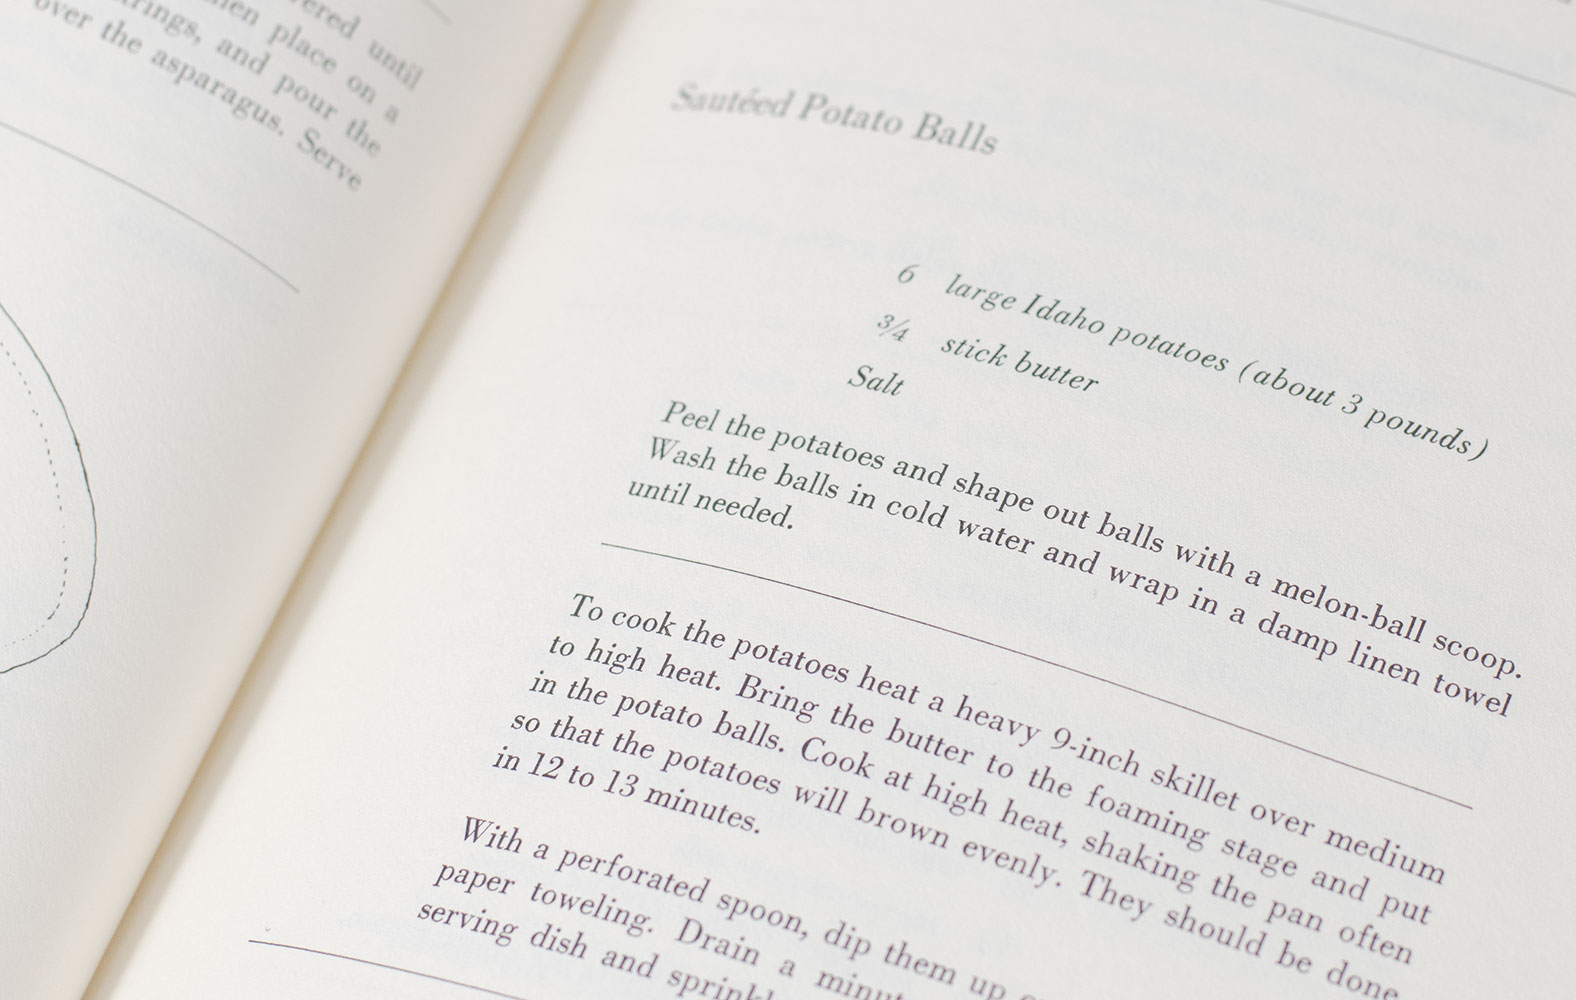 vered until
hen place on a
trings, and pour the
over the asparagus. Serve
Sautéed Potato Balls
6 large Idaho potatoes (about 3 pounds)
¾ stick butter
Salt
Peel the potatoes and shape out balls with a melon-ball scoop.
Wash the balls in cold water and wrap in a damp linen towel
until needed.
To cook the potatoes heat a heavy 9-inch skillet over medium
to high heat. Bring the butter to the foaming stage and put
in the potato balls. Cook at high heat, shaking the pan often
so that the potatoes will brown evenly. They should be done
in 12 to 13 minutes.
With a perforated spoon, dip them up
paper toweling. Drain a minut
serving dish and sprinkl